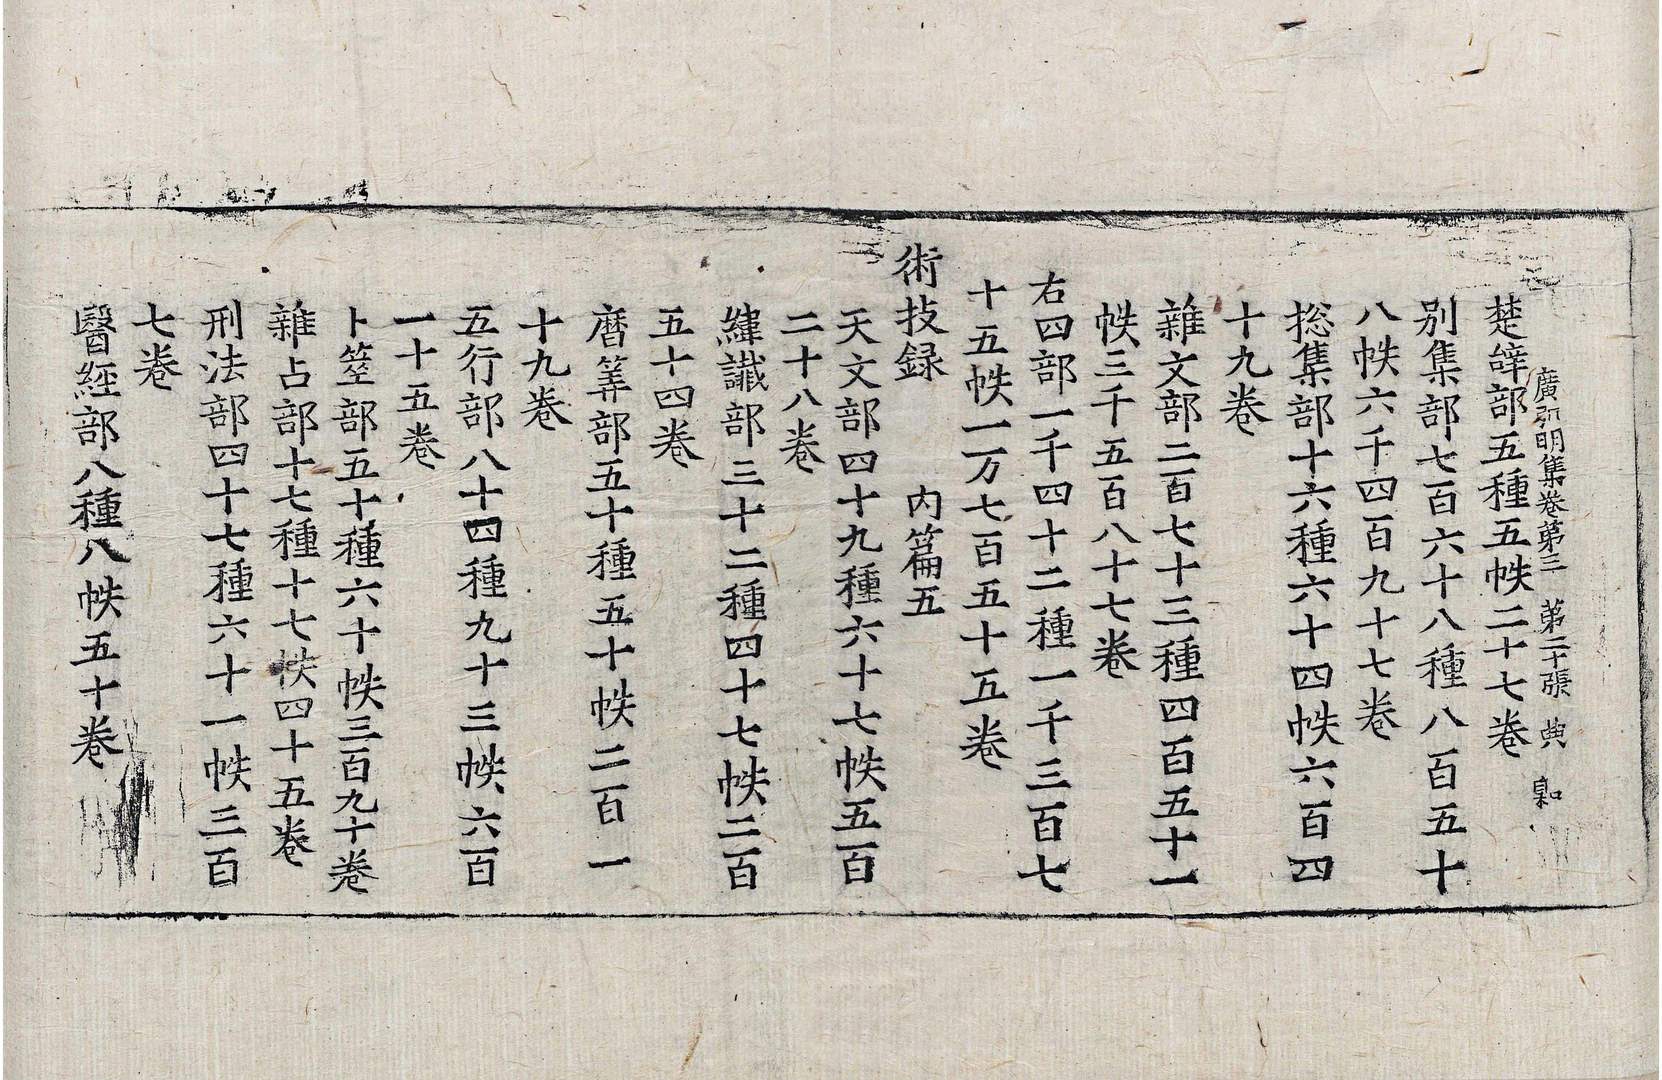 廣弘明集卷第三　第二十張　典
楚辝部五種五帙二十七卷
別集部七百六十八種八百五十
八帙六千四百九十七卷
捴集部十六種六十四帙六百四
十九卷
雜文部二百七十三種四百五十一
帙三千五百八十七卷
右四部一千四十二種一千三百七
十五帙一万七百五十五卷
術技録　內篇五
天文部四十九種六十七帙五百
二十八卷
緯讖部三十二種四十七帙二百
五十四卷
曆筭部五十種五十帙二百一
十九卷
五行部八十四種九十三帙六百
一十五卷
卜筮部五十種六十帙三百九十卷
雜占部十七種十七帙四十五卷
刑法部四十七種六十一帙三百
七卷
醫經部八種八帙五十卷